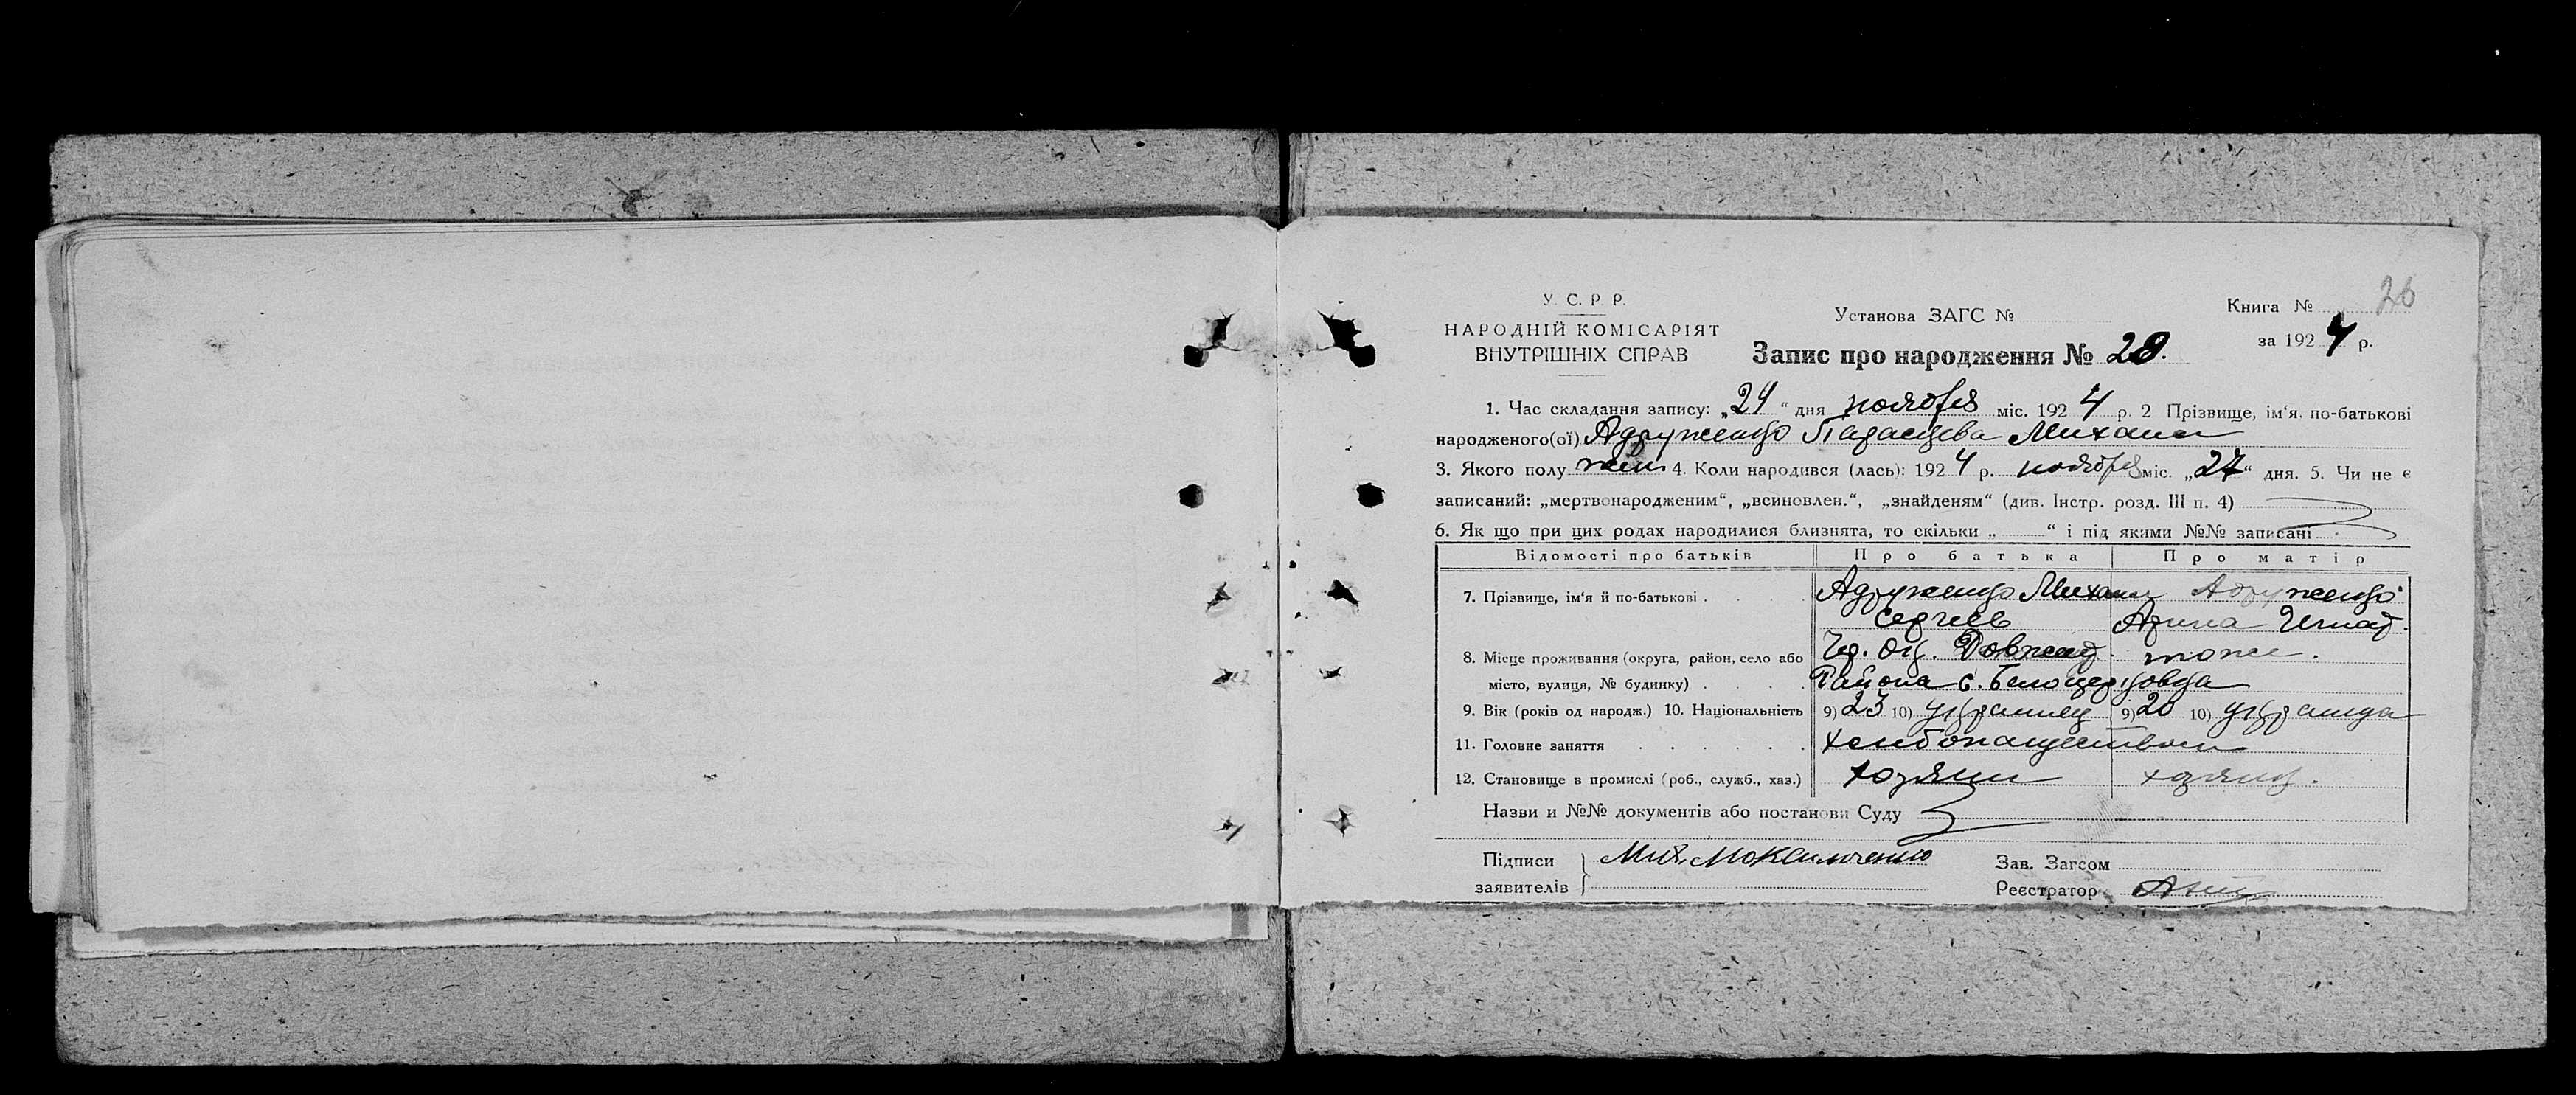 26
У. С. Р. Р.
НАРОДНІЙ КОМІСАРІЯТ
ВНУТРІШНІХ СПРАВ
Установа ЗАГС №
Книга №
за 1924 р.
Запис про народження № 28.
1. Час складання запису: „24“ дня ноября міс. 1924 р. 2 Прізвище, ім‘я. по-батькові
народженого(ої) Адруженко Параскева Михаил
3. Якого полу жен 4. Коли народився (лась): 1924 р. ноября міс. „27“ дня. 5. Чи не є
записаний: „мертвонародженим“, „всиновлен.“, „знайденям“ (див. Інстр. розд. III п. 4)
6. Як що при цих родах народилися близнята, то скільки „ “ і під якими №№ записані
Відомості про батьків Про батька Про матір
7. Прізвище, ім‘я й по-батькові Адруженко Михаил Адруженко
Сергеев Арина Игнат.
8. Місце проживання (округа, район, село або Чер. Ок. Довжек. тоже.
місто, вулиця, № будинку) Района с. Белоцерковка
9. Вік (років од народж.) 10. Національність 9) 23 10) украинец 9) 20 10) украинка
11. Головне заняття хлебопашеством
12. Становище в промислі (роб., служб., хаз.) хозяин хозяик.
Назви и №№ документів або постанови Суду
Підписи Мих. Максимченко Зав. Загсом
заявителів Реєстратор